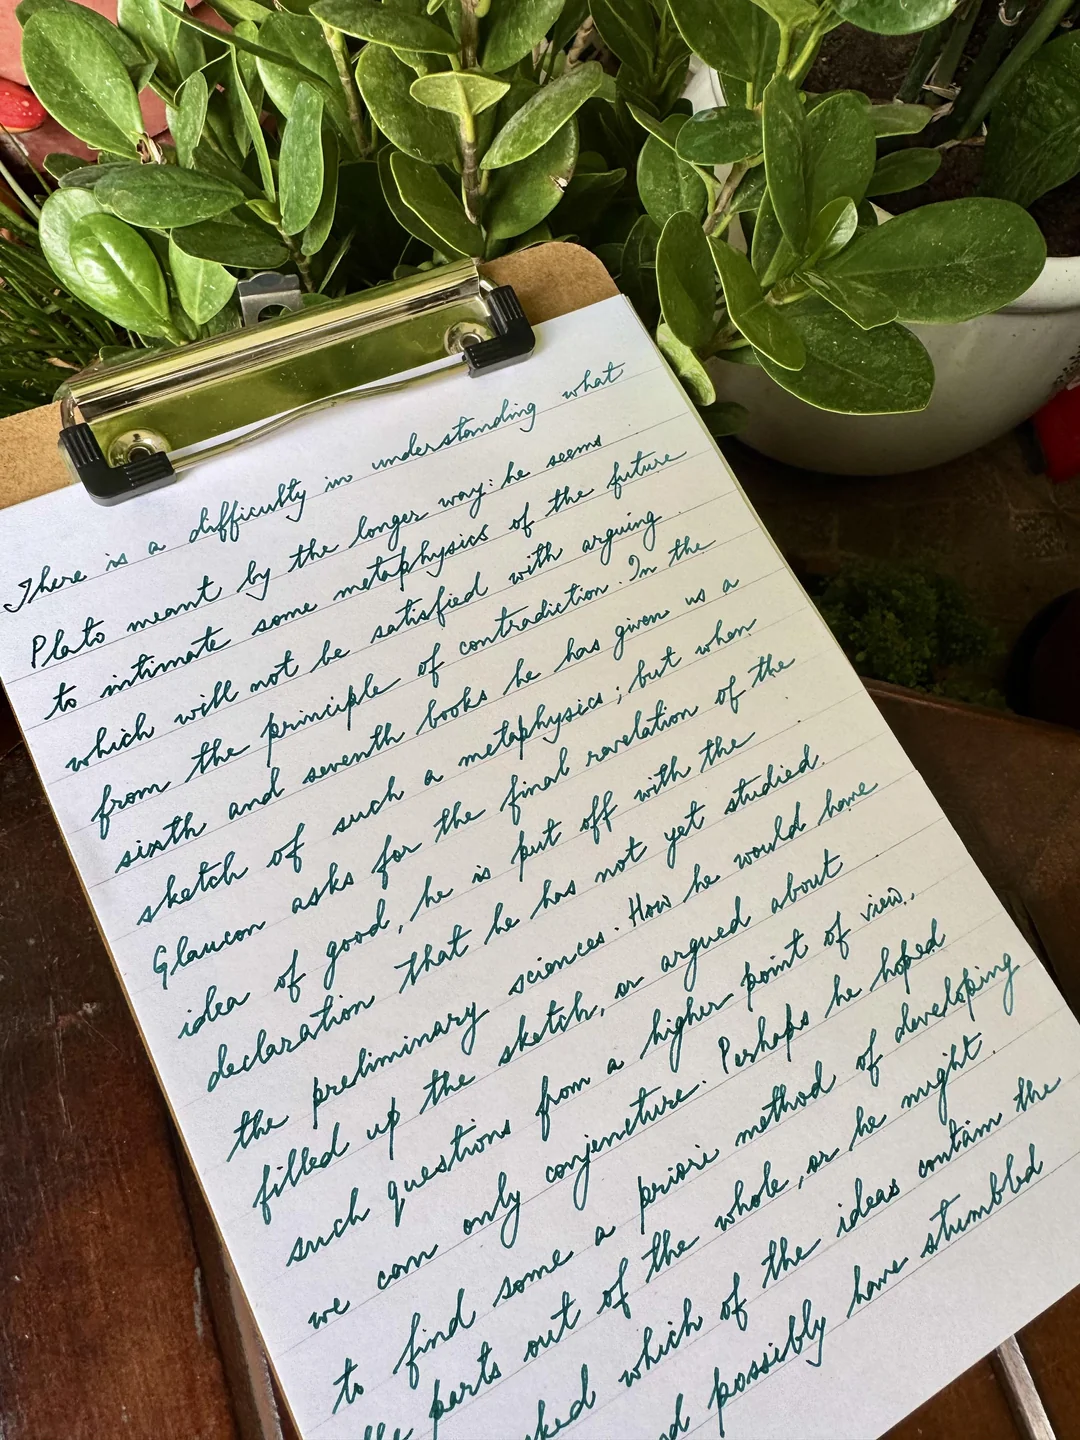 There is a difficulty in understanding what
Plato meant by the longer way: he seems
to intimate some metaphysics of the future
which will not be satisfied with arguing
from the principle of contradiction. In the
sixth and seventh books he has given us a
sketch of such a metaphysics; but when
Glaucon asks for the final revelation of the
idea of good, he is put off with the
declaration that he has not yet studied
the preliminary sciences. How he would have
filled up the sketch, or argued about
such questions from a higher point of view,
we can only conjecture. Perhaps he hoped
to find some a priori method of developing
parts out of the whole, or he might
which of the ideas contain the
possibly have stumbled